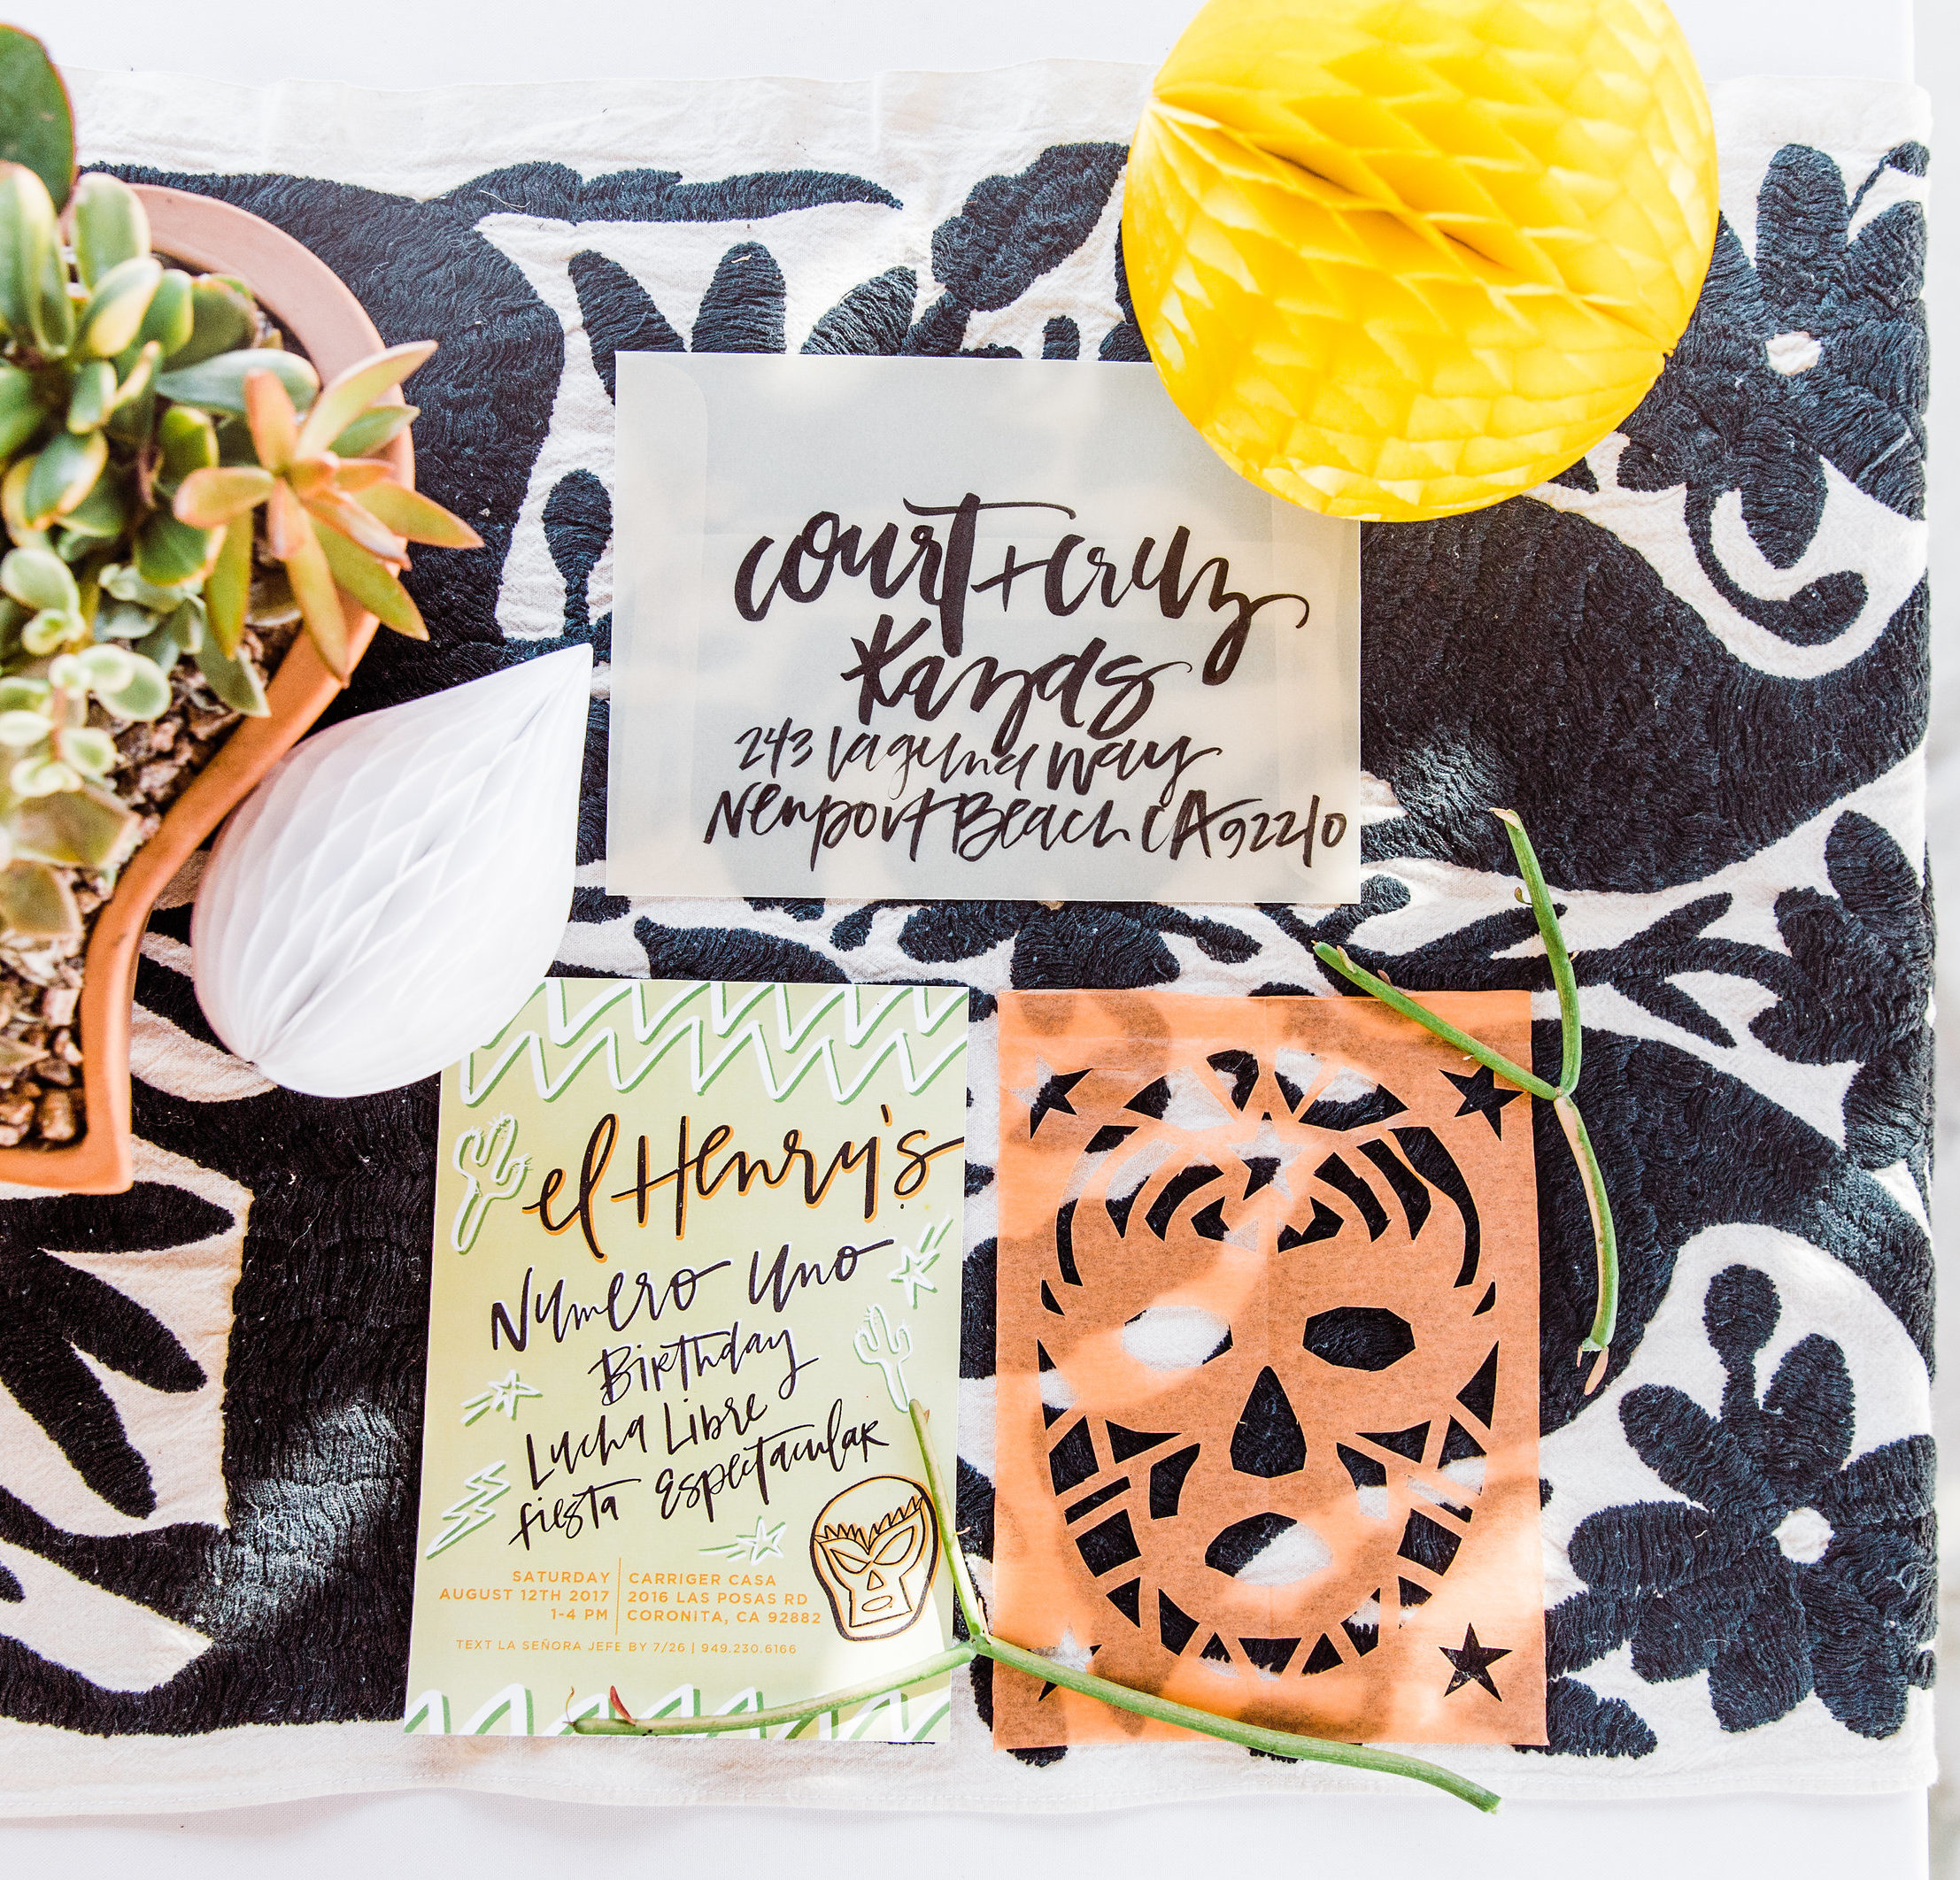 court + cruz
Kayds
243 laguna way
Newport Beach CA 92210
el Henry's
Numero Uno
Birthday
Lucha Libre
fiesta Espectacular
SATURDAY
AUGUST 12TH 2017
1-4 PM
CARRIGER CASA
2016 LAS POSAS RD
CORONITA, CA 92882
TEXT LA SEÑORA JEFE BY 7/26 | 949.230.6166